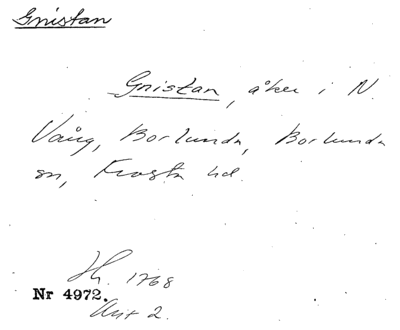 Gnistan
Gnistan, åker i N.
Vång, Borlunda, Borlunda
sn, Frosta hd.
H. 1768
Nr 4972.
Akt 2.